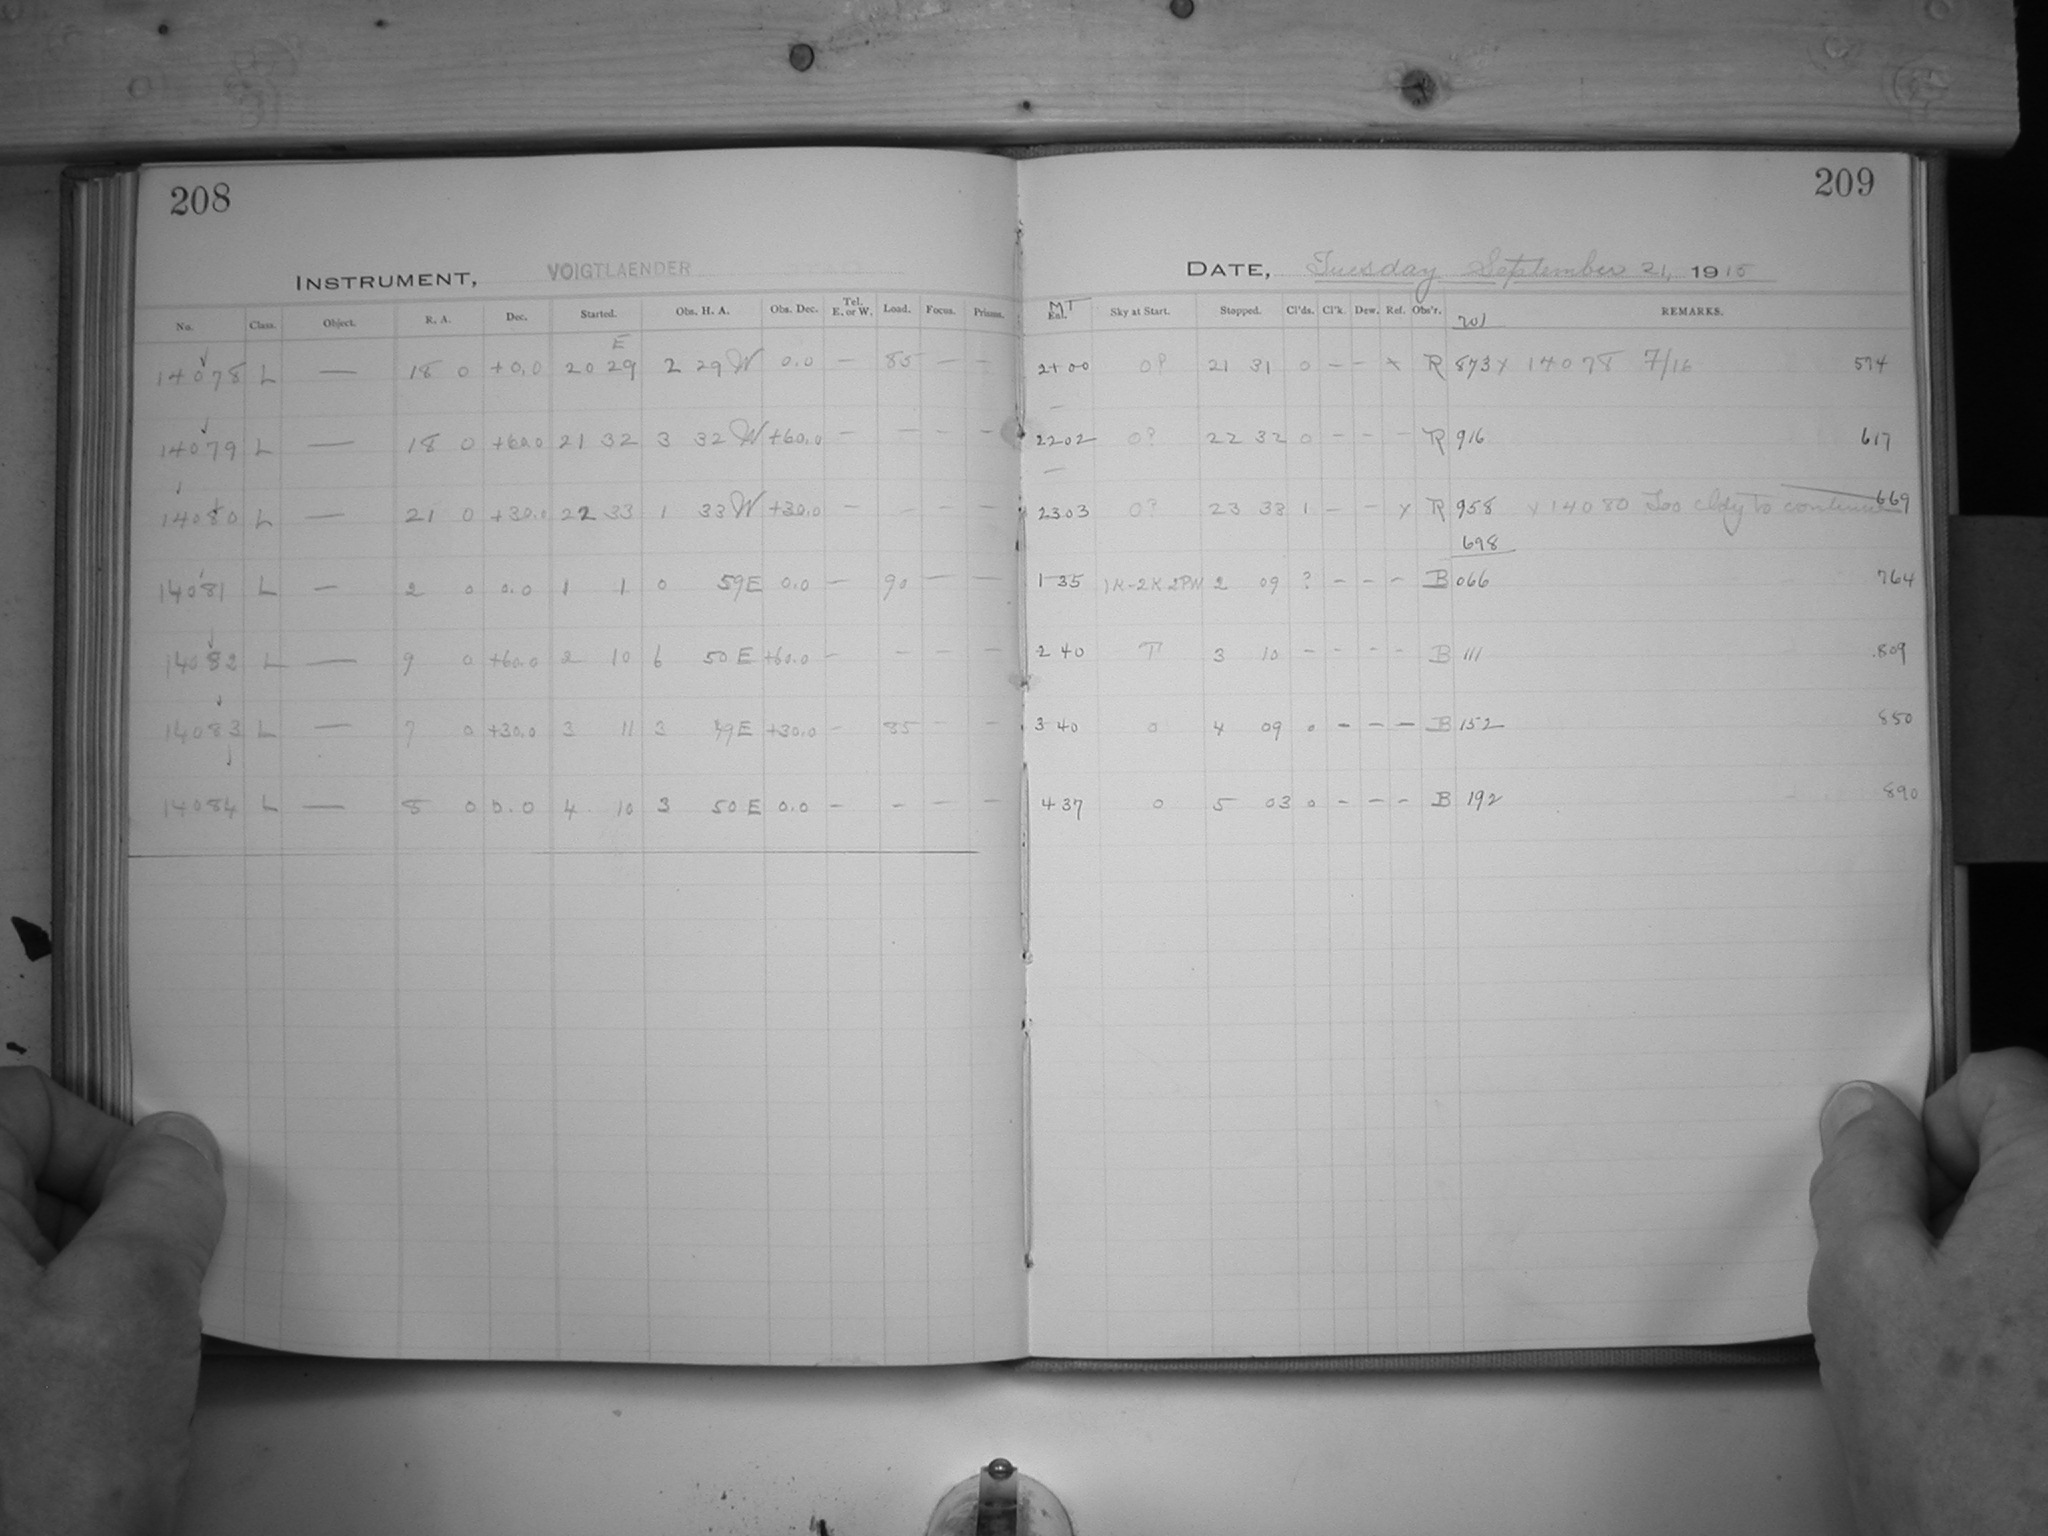 208
209
INSTRUMENT, VOIGTLAENDER
DATE, Tuesday September 21, 1915
No. Class. Object. R. A. Dec. Started. Obs. H. A. Obs. Dec. Tel. E. or W. Load. Focus. Prisms. MT Sky at Start. Stopped. Cl'ds. Cl'k. Dew. Ref. Obs'r. REMARKS.
E 701
14078 L — 18 0 +0.0 20 29 2 29 W 0.0 — 85 — — 21 00 0? 21 31 0 — — x R 873 x 14078 7/16 574
14079 L — 18 0 +60.0 21 32 3 32 W +60.0 — — — — 22 02 0? 22 32 0 — — — R 916 617
14080 L — 21 0 +30.0 22 33 1 33 W +30.0 — — — — 23 03 0? 23 33 1 — — x R 958 x 14080 Too cldy to continue 669
698
14081 L — 2 0 0.0 1 1 0 59 E 0.0 — 90 — — 1 35 1K-2K2PM 2 09 ? — — — B 066 764
14082 L — 9 0 +60.0 2 10 6 50 E +60.0 — — — — 2 40 T 3 10 — — — — B 111 809
14083 L — 7 0 +30.0 3 11 3 49 E +30.0 — 85 — — 3 40 0 4 09 0 — — — B 152 850
14084 L — 8 0 0.0 4 10 3 50 E 0.0 — — — — 4 37 0 5 03 0 — — — B 192 890